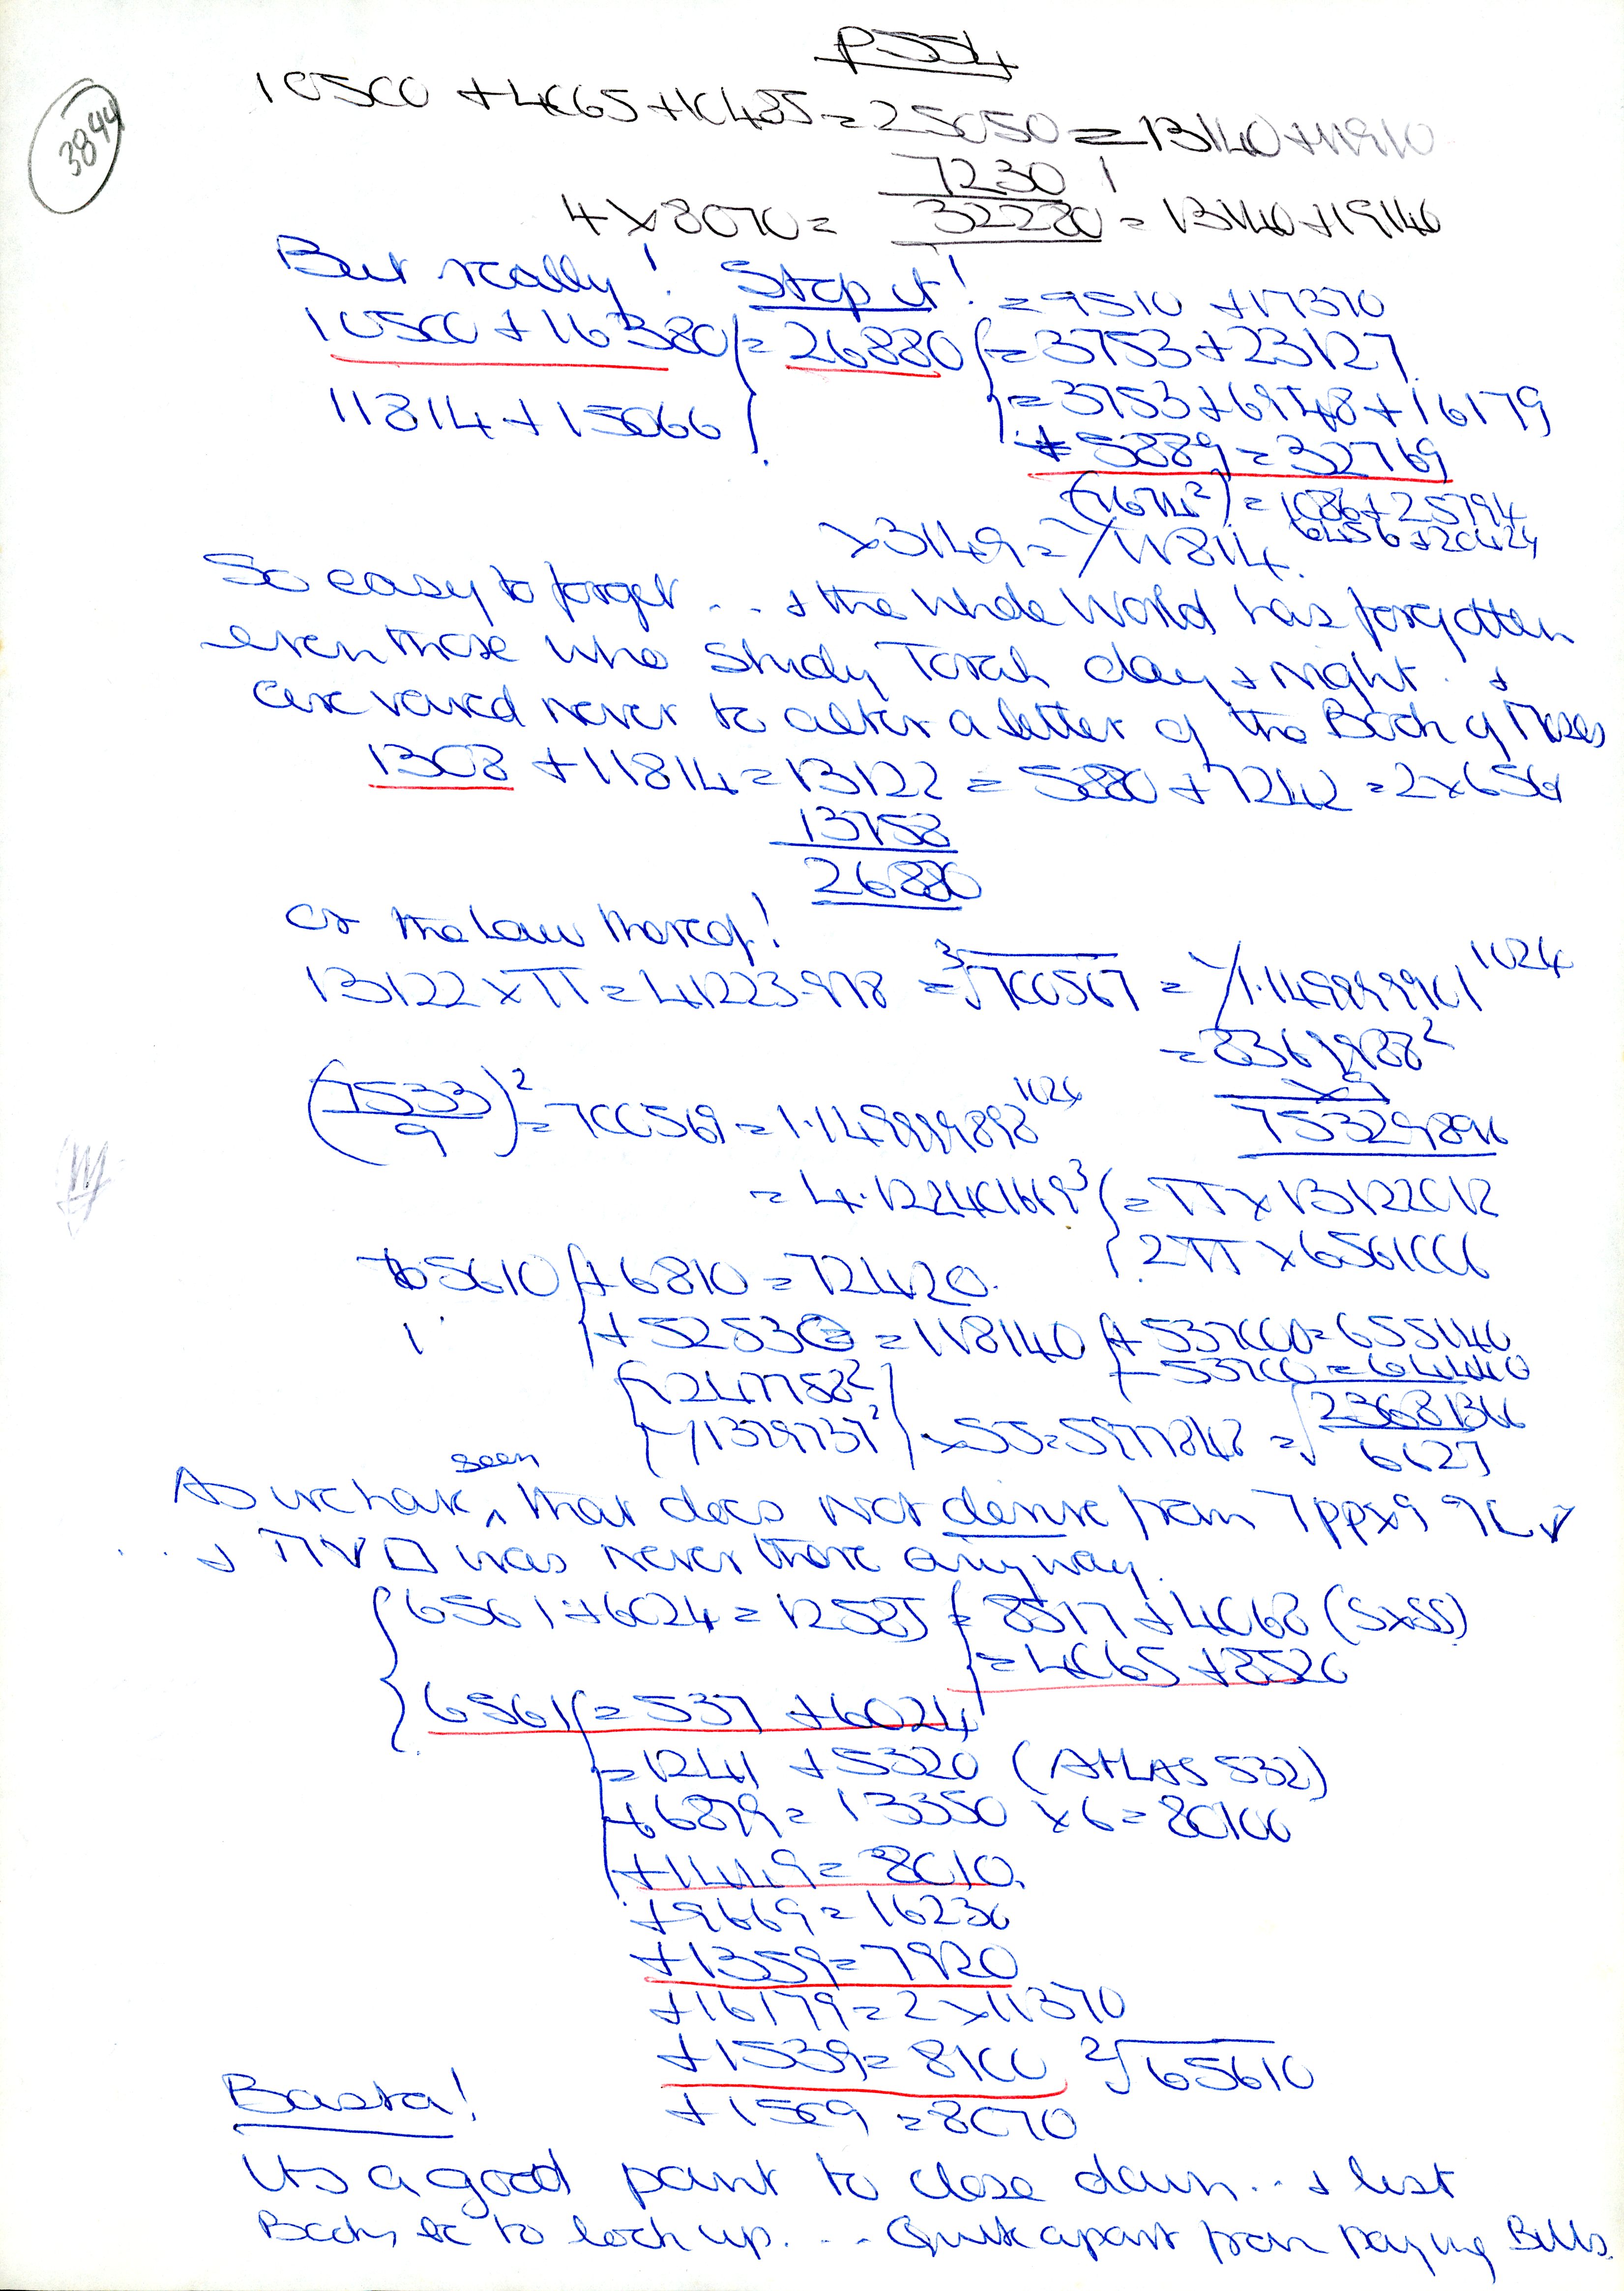 P554
3844
10500 + 4065 + 10485 = 25050 = 13140 + 11910
7230
4 × 8070 = 32280 = 13140 + 19140
But really! Stop it! = 9510 + 17370
10500 + 16380 = 26880 = 3753 + 23127
11814 + 15066 = 3753 + 6948 + 16179
+ 5889 = 32769
= 1086 + 25794
× 3149 = 11814. 6456 + 20424
So easy to forget ... + the whole World has forgotten
even those who study Torah day + night. +
are vowed never to alter a letter of the Book of Moses
1308 + 11814 = 13122 = 5880 + 7242 = 2 × 6561
13758
26880
or the Law thereof!
13122 × π = 41223.978 = ³√700567 = 1.149999901¹⁰²⁴
= 8361988²
(7533/9)² = 700569 = 1.149999898¹⁰²⁴ × 9
75329896
= 4.122401669³ = π × 13122012
2π × 6561006
65610 + 6810 = 72420.
+ 52530 = 118140 + 537000 = 655140
− 53700 = 64440
× 55 =
6627
As we have seen that does not derive from 7pp × 9 9L
... + was never there anyway.
6561 + 6024 = 12585 = 8517 + 4068 (SxSS)
= 4065 + 8520
6561 = 537 + 6024
= 1241 + 5320 (ATLAS 532)
+ 6879 = 13350 × 6 = 80100
+ 1449 = 8010
+ 9669 = 16230
+ 1359 = 7920
+ 16179 = 2 × 11370
+ 1539 = 8100 ²√65610
+ 1509 = 8070
Basta!
It's a good point to close down ... + list
Books &c to look up. ... Quite apart from paying Bills.